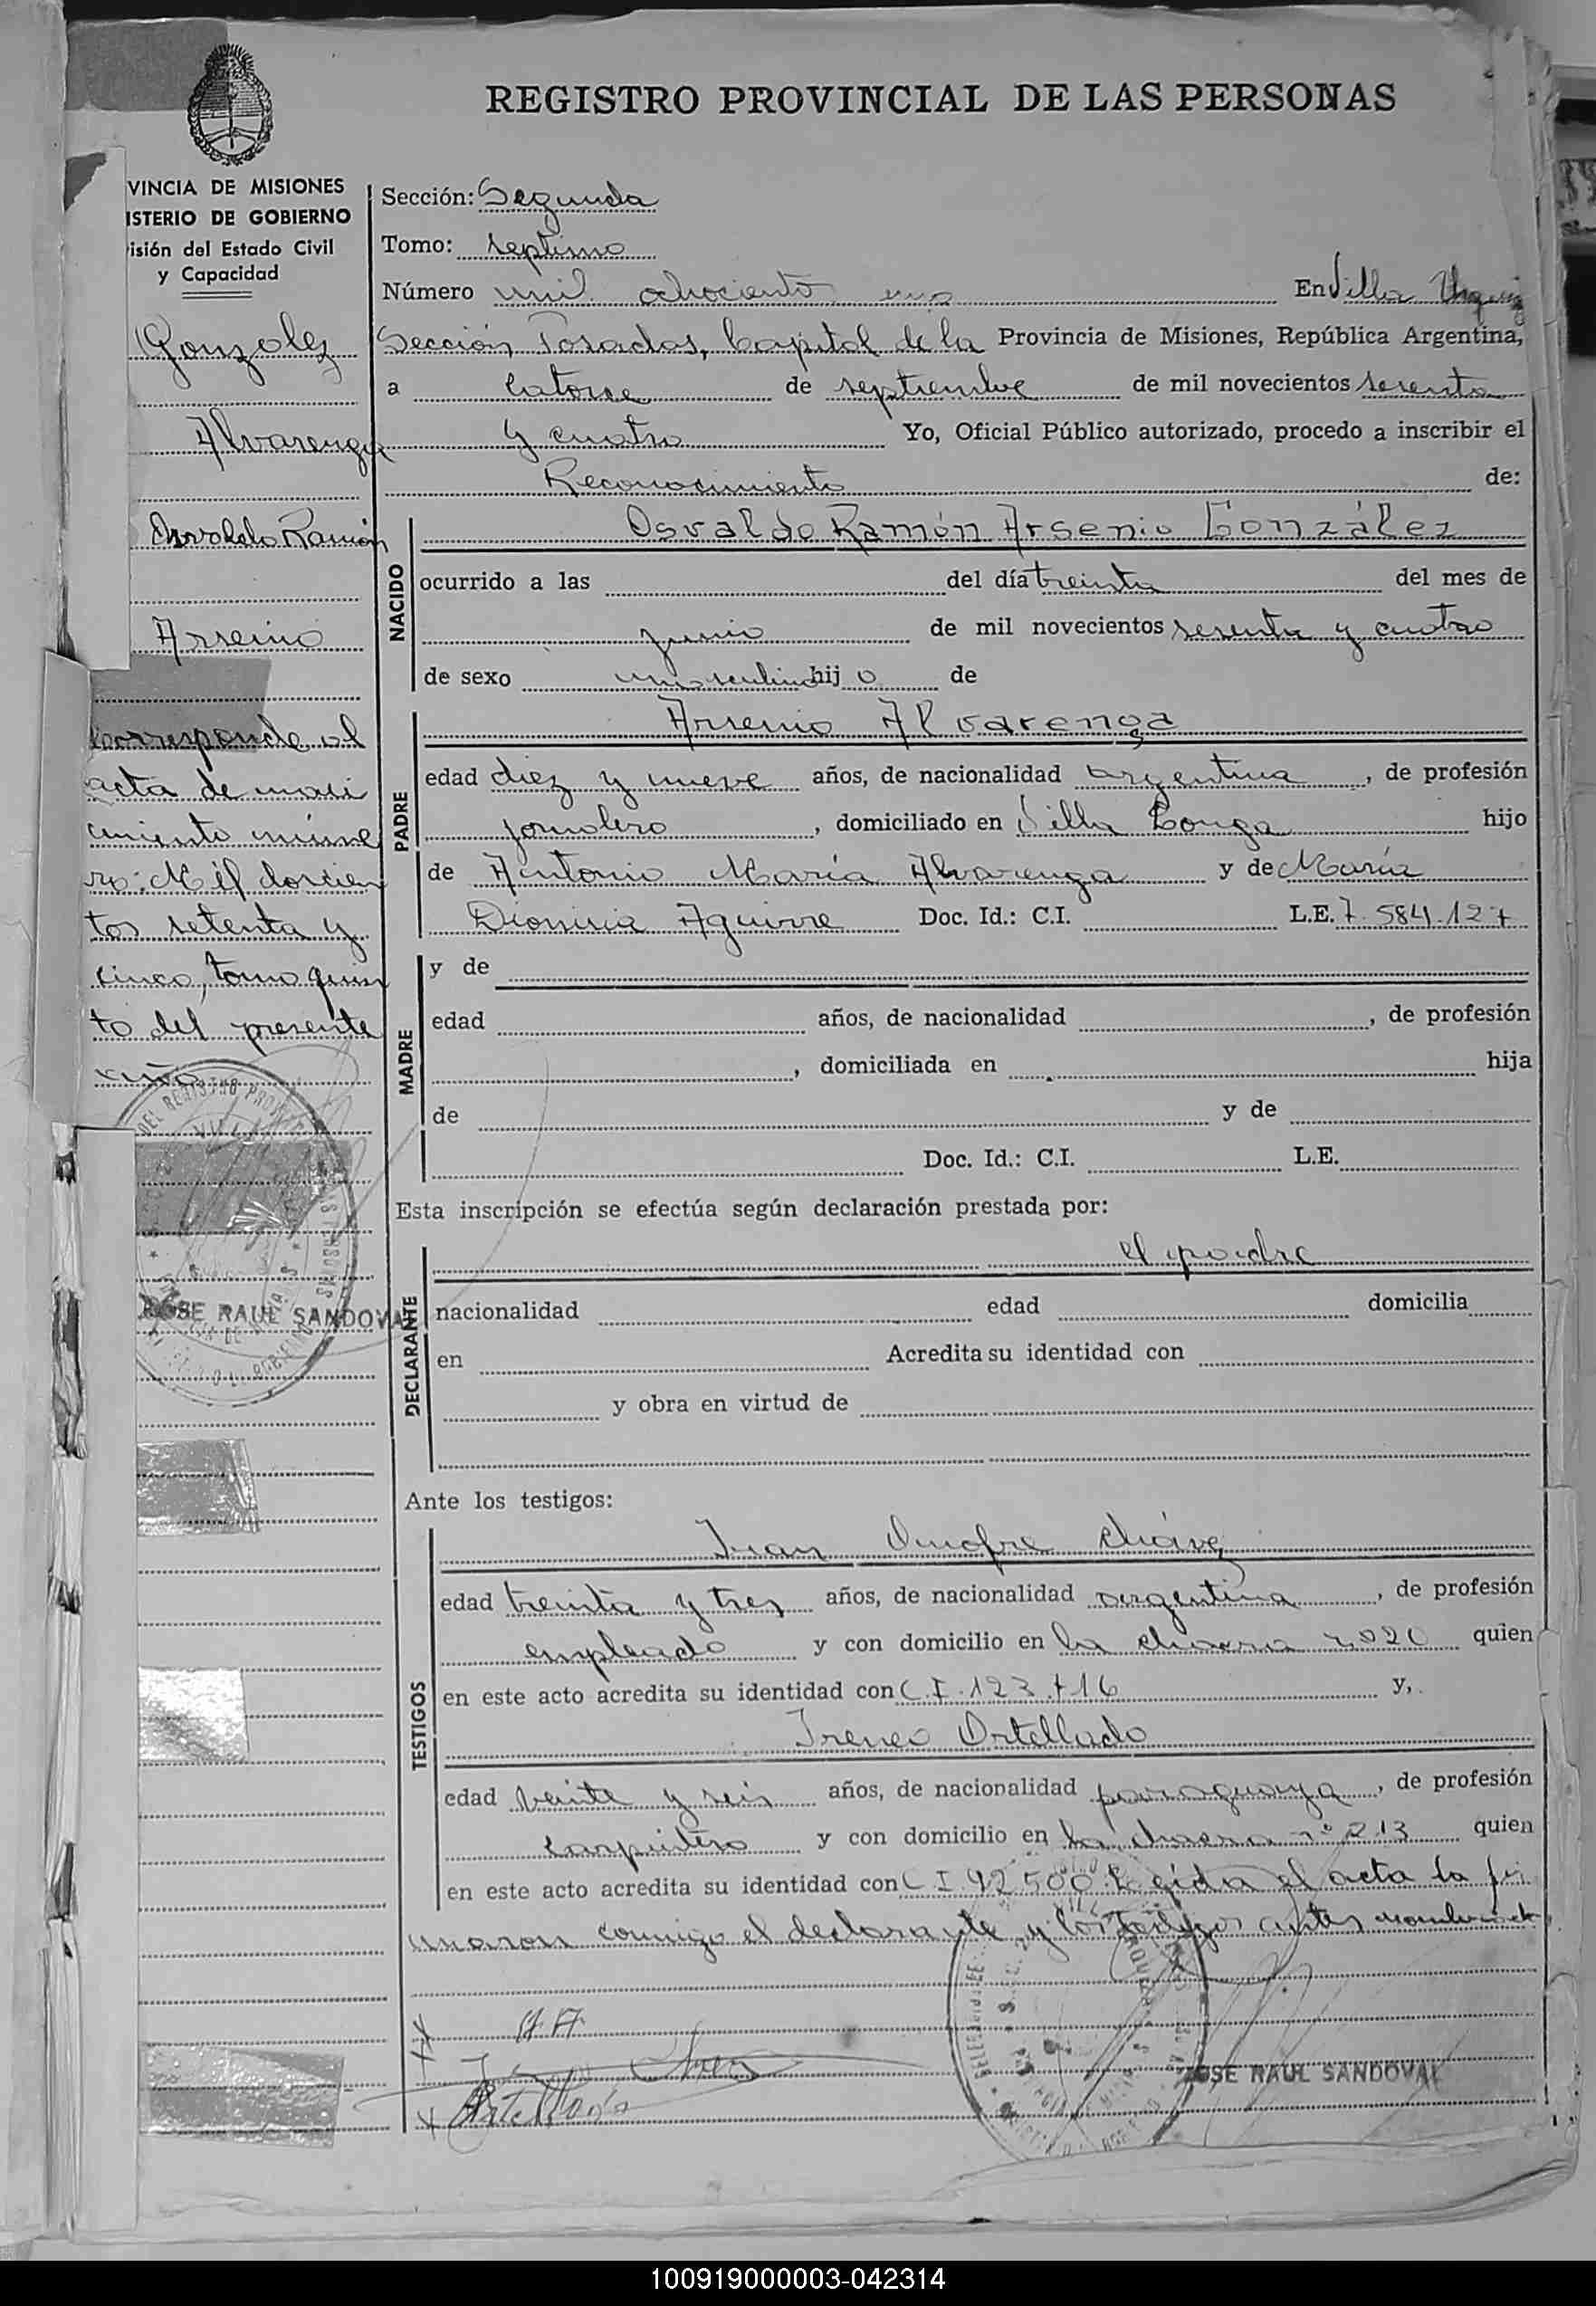 REGISTRO PROVINCIAL DE LAS PERSONAS
VINCIA DE MISIONES
ISTERIO DE GOBIERNO
isión del Estado Civil
y Capacidad
Gonzalez
Alvarenga
Osvaldo Ramón
Arsenio
Corresponde al
acta de naci
miento núme
ro: Mil doscien
tos setenta y
cinco, tomo quin
to del presente
año
JOSE RAUL SANDOVAL
Sección: Segunda
Tomo: septimo
Número mil ochociento uno En Villa Urquiza
Sección Posadas, Capital de la Provincia de Misiones, República Argentina,
a catorce de septiembre de mil novecientos sesenta
y cuatro Yo, Oficial Público autorizado, procedo a inscribir el
Reconocimiento de:
NACIDO
Osvaldo Ramón Arsenio González
ocurrido a las del día treinta del mes de
junio de mil novecientos sesenta y cuatro
de sexo masculino hij o de
PADRE
Arsenio Alvarenga
edad diez y nueve años, de nacionalidad argentina, de profesión
jornalero, domiciliado en Villa Longa hijo
de Antonio María Alvarenga y de María
Dionisia Aguirre Doc. Id.: C.I. L.E. 7.584.127
MADRE
y de
edad años, de nacionalidad , de profesión
, domiciliada en hija
de y de
Doc. Id.: C.I. L.E.
Esta inscripción se efectúa según declaración prestada por:
DECLARANTE
el padre
nacionalidad edad domicilia
en Acredita su identidad con
y obra en virtud de
Ante los testigos:
TESTIGOS
Juan Onofre Chávez
edad treinta y tres años, de nacionalidad argentina, de profesión
empleado y con domicilio en la chacra quien
en este acto acredita su identidad con C.I. 123.716 y,
Ireneo Ortellado
edad veinte y seis años, de nacionalidad paraguaya, de profesión
carpintero y con domicilio en la chacra nº 213 quien
en este acto acredita su identidad con C I 92500 Leida el acta la fir
maron conmigo el declarante y los testigos antes
A.A.
JOSE RAUL SANDOVAL
100919000003-042314